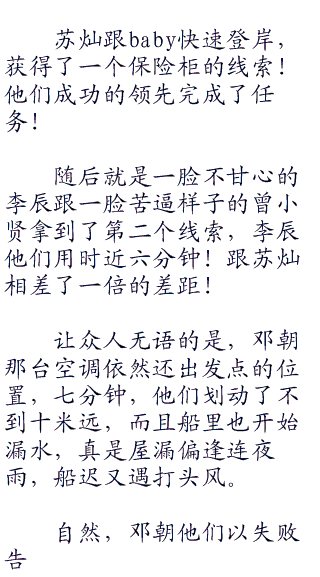 苏灿跟baby快速登岸，
获得了一个保险柜的线索！
他们成功的领先完成了任
务！
随后就是一脸不甘心的
李辰跟一脸苦逼样子的曾小
贤拿到了第二个线索，李辰
他们用时近六分钟！跟苏灿
相差了一倍的差距！
让众人无语的是，邓朝
那台空调依然还出发点的位
置，七分钟，他们划动了不
到十米远，而且船里也开始
漏水，真是屋漏偏逢连夜
雨，船迟又遇打头风。
自然，邓朝他们以失败
告